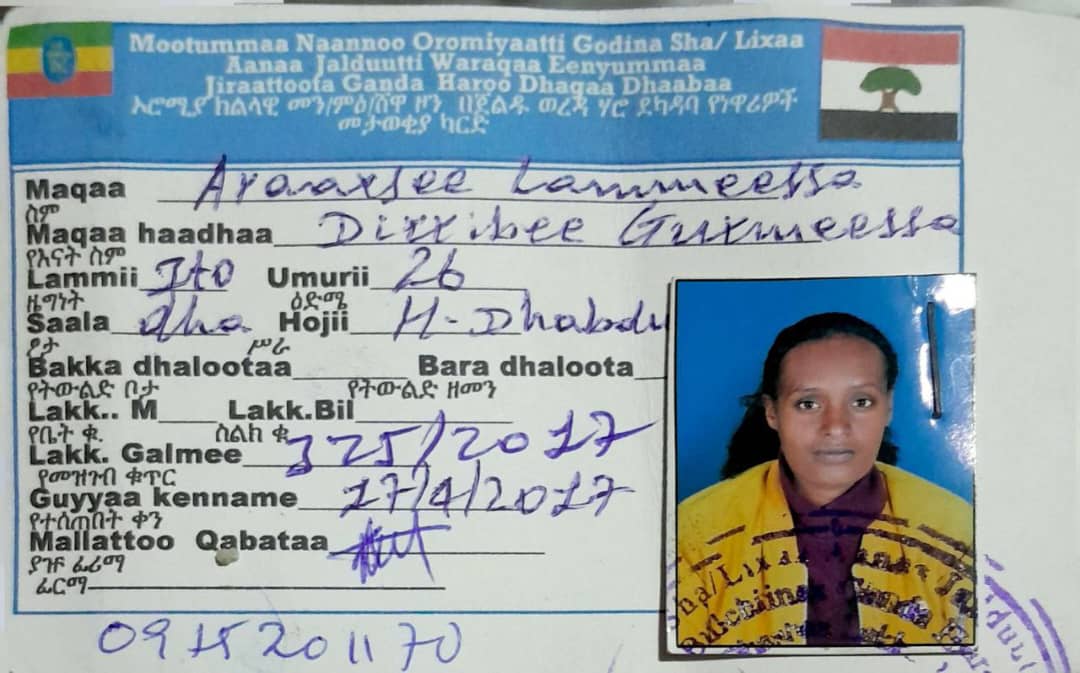 Mootummaa Naannoo Oromiyaatti Godina Sha/ Lixaa
Aanaa Jalduutti Waraqaa Eenyummaa
Jiraattoota Ganda Haroo Dhaqaa Dhaabaa
ኦሮሚያ ክልላዊ መን/ምዕ/ሸዋ ዞን በጀልዱ ወረዳ ሃሮ ደካዳባ የነዋሪዎች
መታወቂያ ካርድ
Maqaa Araarsee Lammeessa
ስም
Maqaa haadhaa Dirribee Gurmeessa
የእናት ስም
Lammii Ito Umurii 26
ዜግነት ዕድሜ
Saala dha Hojii H-Dhabdu
ፆታ ሥራ
Bakka dhalootaa Bara dhaloota
የትውልድ ቦታ የትውልድ ዘመን
Lakk.. M Lakk.Bil
የቤት ቁ. ስልክ ቁ
Lakk. Galmee 325/2017
የመዝገብ ቁጥር
Guyyaa kenname 17/4/2017
የተሰጠበት ቀን
Mallattoo Qabataa
ያዡ ፊሪማ
ፊርማ
0915201170